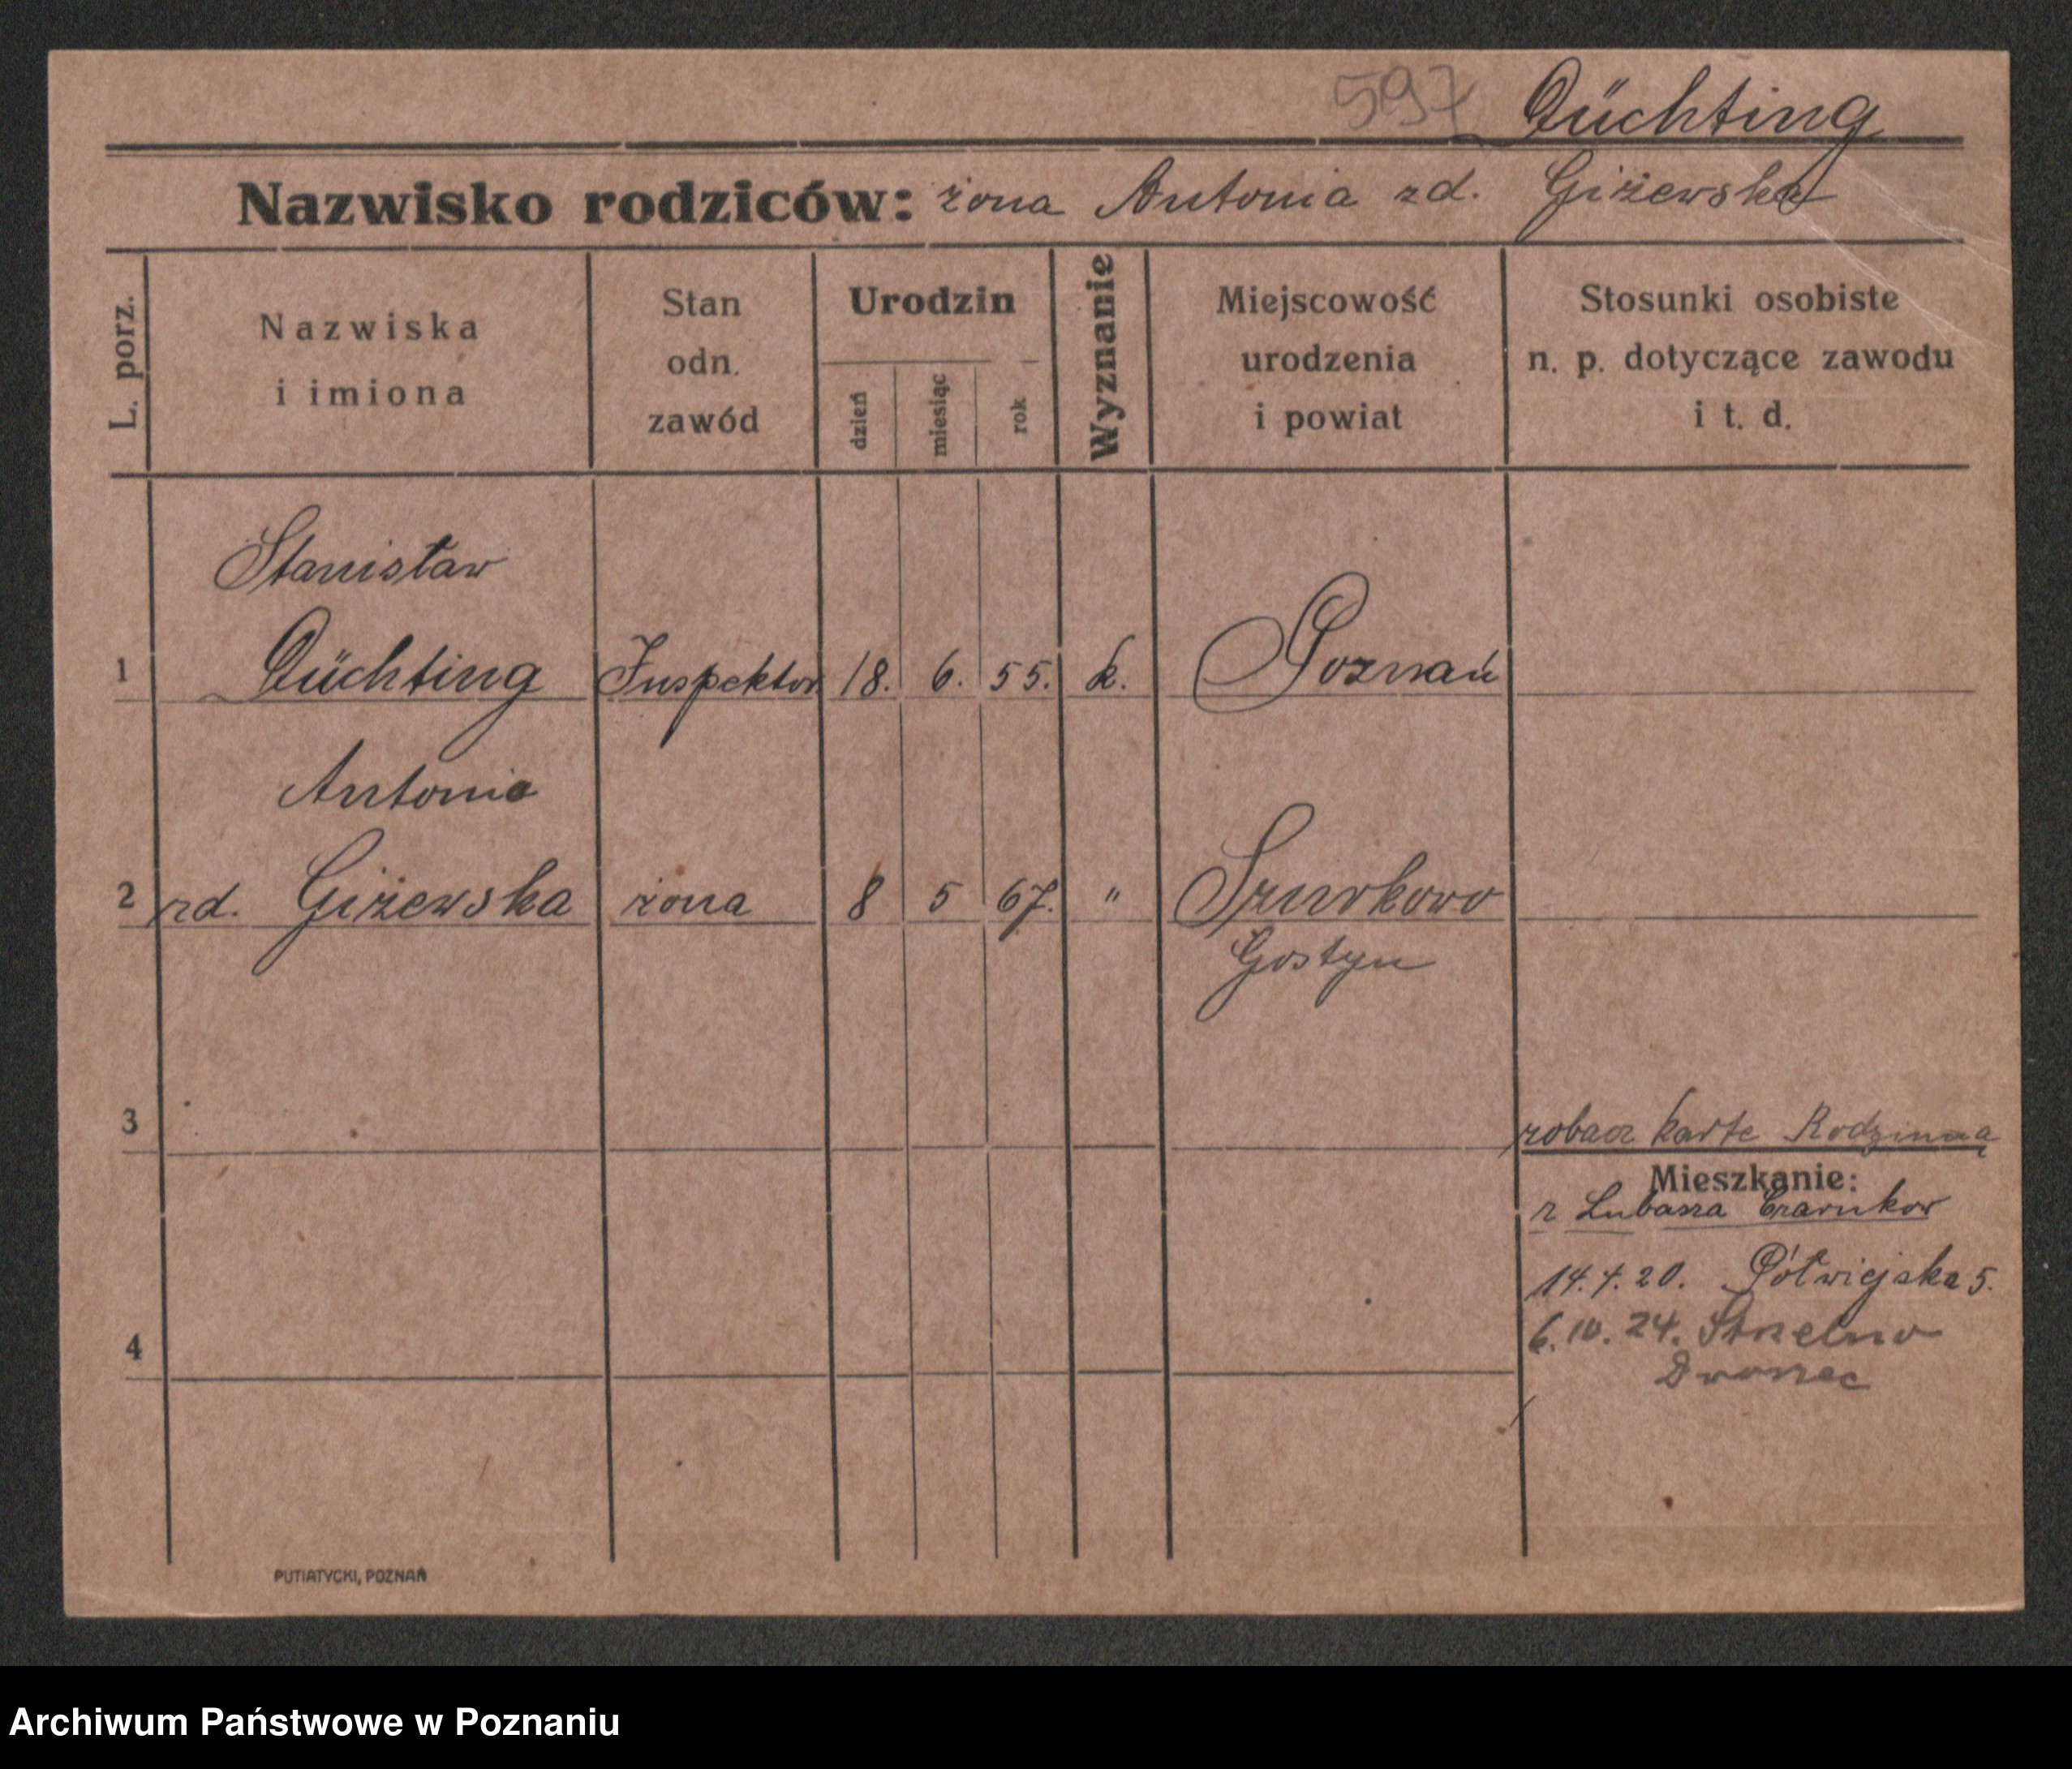 597 Düchting
Nazwisko rodziców: żona Antonia zd. Giżewska
L. porz.
Nazwiska
i imiona
Stan
odn.
zawód
Urodzin
dzień
miesiąc
rok
Wyznanie
Miejscowość
urodzenia
i powiat
Stosunki osobiste
n. p. dotyczące zawodu
i t. d.
Stanisław
1 Düchting Inspektor 18. 6. 55. k. Poznań
Antonia
2 zd. Giżewska żona 8 5 67. " Szurkowo
Gostyn
3
zobacz karte Rodzinną
Mieszkanie:
z Lubasza Czarnkow
14.7.20. Półwiejska 5.
6.10.24. Strzelno
4
Dworzec
PUTIATYCKI, POZNAŃ
Archiwum Państwowe w Poznaniu